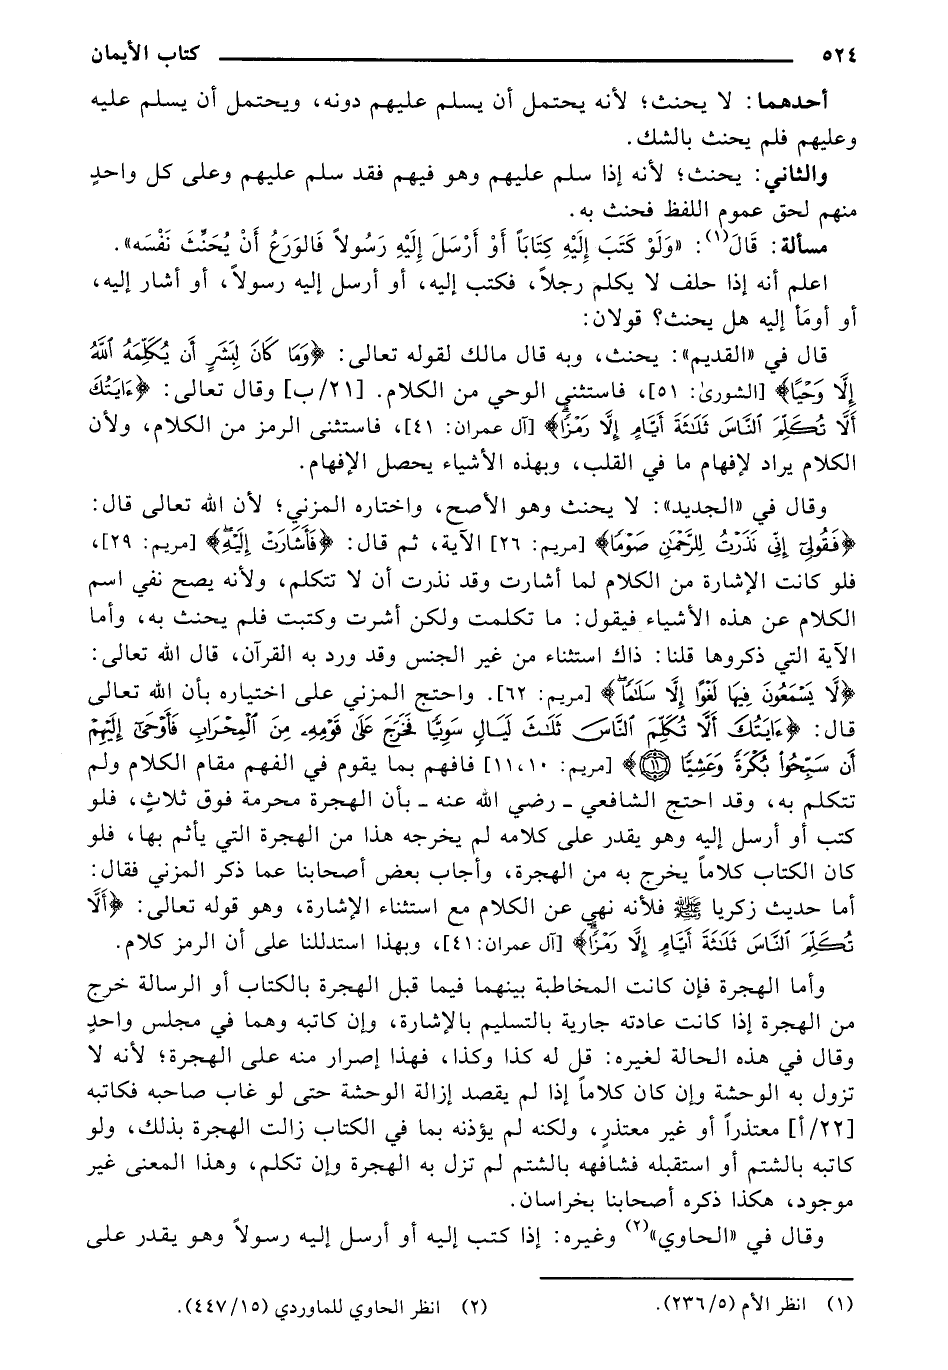 ٥٢٤ كتاب الأيمان
أحدهما: لا يحنث؛ لأنه يحتمل أن يسلم عليهم دونه، ويحتمل أن يسلم عليه
وعليهم فلم يحنث بالشك.
والثاني: يحنث؛ لأنه إذا سلم عليهم وهو فيهم فقد سلم عليهم وعلى كل واحدٍ
منهم لحق عموم اللفظ فحنث به.
مسألة: قَالَ(١): «وَلَوْ كَتَبَ إِلَيْهِ كِتَاباً أَوْ أَرْسَلَ إِلَيْهِ رَسُولاً فَالوَرَعُ أَنْ يُحَنِّثَ نَفْسَه».
اعلم أنه إذا حلف لا يكلم رجلاً، فكتب إليه، أو أرسل إليه رسولاً، أو أشار إليه،
أو أومَأ إليه هل يحنث؟ قولان:
قال في «القديم»: يحنث، وبه قال مالك لقوله تعالى: ﴿وَمَا كَانَ لِبَشَرٍ أَن يُكَلِّمَهُ ٱللَّهُ
إِلَّا وَحْيًا﴾ [الشورىٰ: ٥١]، فاستثني الوحي من الكلام. [٢١/ب] وقال تعالى: ﴿ءَايَتُكَ
أَلَّا تُكَلِّمَ ٱلنَّاسَ ثَلَٰثَةَ أَيَّامٍ إِلَّا رَمْزًا﴾ [آل عمران: ٤١]، فاستثنى الرمز من الكلام، ولأن
الكلام يراد لإفهام ما في القلب، وبهذه الأشياء يحصل الإفهام.
وقال في «الجديد»: لا يحنث وهو الأصح، واختاره المزني؛ لأن الله تعالى قال:
﴿فَقُولِىٓ إِنِّى نَذَرْتُ لِلرَّحْمَٰنِ صَوْمًا﴾ [مريم: ٢٦] الآية، ثم قال: ﴿فَأَشَارَتْ إِلَيْهِ﴾ [مريم: ٢٩]،
فلو كانت الإشارة من الكلام لما أشارت وقد نذرت أن لا تتكلم، ولأنه يصح نفي اسم
الكلام عن هذه الأشياء فيقول: ما تكلمت ولكن أشرت وكتبت فلم يحنث به، وأما
الآية التي ذكروها قلنا: ذاك استثناء من غير الجنس وقد ورد به القرآن، قال الله تعالى:
﴿لَّا يَسْمَعُونَ فِيهَا لَغْوًا إِلَّا سَلَٰمًا﴾ [مريم: ٦٢]. واحتج المزني على اختياره بأن الله تعالى
قال: ﴿ءَايَتُكَ أَلَّا تُكَلِّمَ ٱلنَّاسَ ثَلَٰثَ لَيَالٍ سَوِيًّا فَخَرَجَ عَلَىٰ قَوْمِهِۦ مِنَ ٱلْمِحْرَابِ فَأَوْحَىٰٓ إِلَيْهِمْ
أَن سَبِّحُوا۟ بُكْرَةً وَعَشِيًّا ﴿١١﴾﴾ [مريم: ١٠، ١١] فافهم بما يقوم في الفهم مقام الكلام ولم
تتكلم به، وقد احتج الشافعي - رضي الله عنه - بأن الهجرة محرمة فوق ثلاثٍ، فلو
كتب أو أرسل إليه وهو يقدر على كلامه لم يخرجه هذا من الهجرة التي يأثم بها، فلو
كان الكتاب كلاماً يخرج به من الهجرة، وأجاب بعض أصحابنا عما ذكر المزني فقال:
أما حديث زكريا ﷺ فلأنه نهي عن الكلام مع استثناء الإشارة، وهو قوله تعالى: ﴿أَلَّا
تُكَلِّمَ ٱلنَّاسَ ثَلَٰثَةَ أَيَّامٍ إِلَّا رَمْزًا﴾ [آل عمران: ٤١]، وبهذا استدللنا على أن الرمز كلام.
وأما الهجرة فإن كانت المخاطبة بينهما فيما قبل الهجرة بالكتاب أو الرسالة خرج
من الهجرة إذا كانت عادته جارية بالتسليم بالإشارة، وإن كاتبه وهما في مجلس واحدٍ
وقال في هذه الحالة لغيره: قل له كذا وكذا، فهذا إصرار منه على الهجرة؛ لأنه لا
تزول به الوحشة وإن كان كلاماً إذا لم يقصد إزالة الوحشة حتى لو غاب صاحبه فكاتبه
[٢٢/أ] معتذراً أو غير معتذرٍ، ولكنه لم يؤذنه بما في الكتاب زالت الهجرة بذلك، ولو
كاتبه بالشتم أو استقبله فشافهه بالشتم لم تزل به الهجرة وإن تكلم، وهذا المعنى غير
موجود، هكذا ذكره أصحابنا بخراسان.
وقال في «الحاوي»(٢) وغيره: إذا كتب إليه أو أرسل إليه رسولاً وهو يقدر على
(١) انظر الأم (٢٣٦/٥).
(٢) انظر الحاوي للماوردي (٤٤٧/١٥).